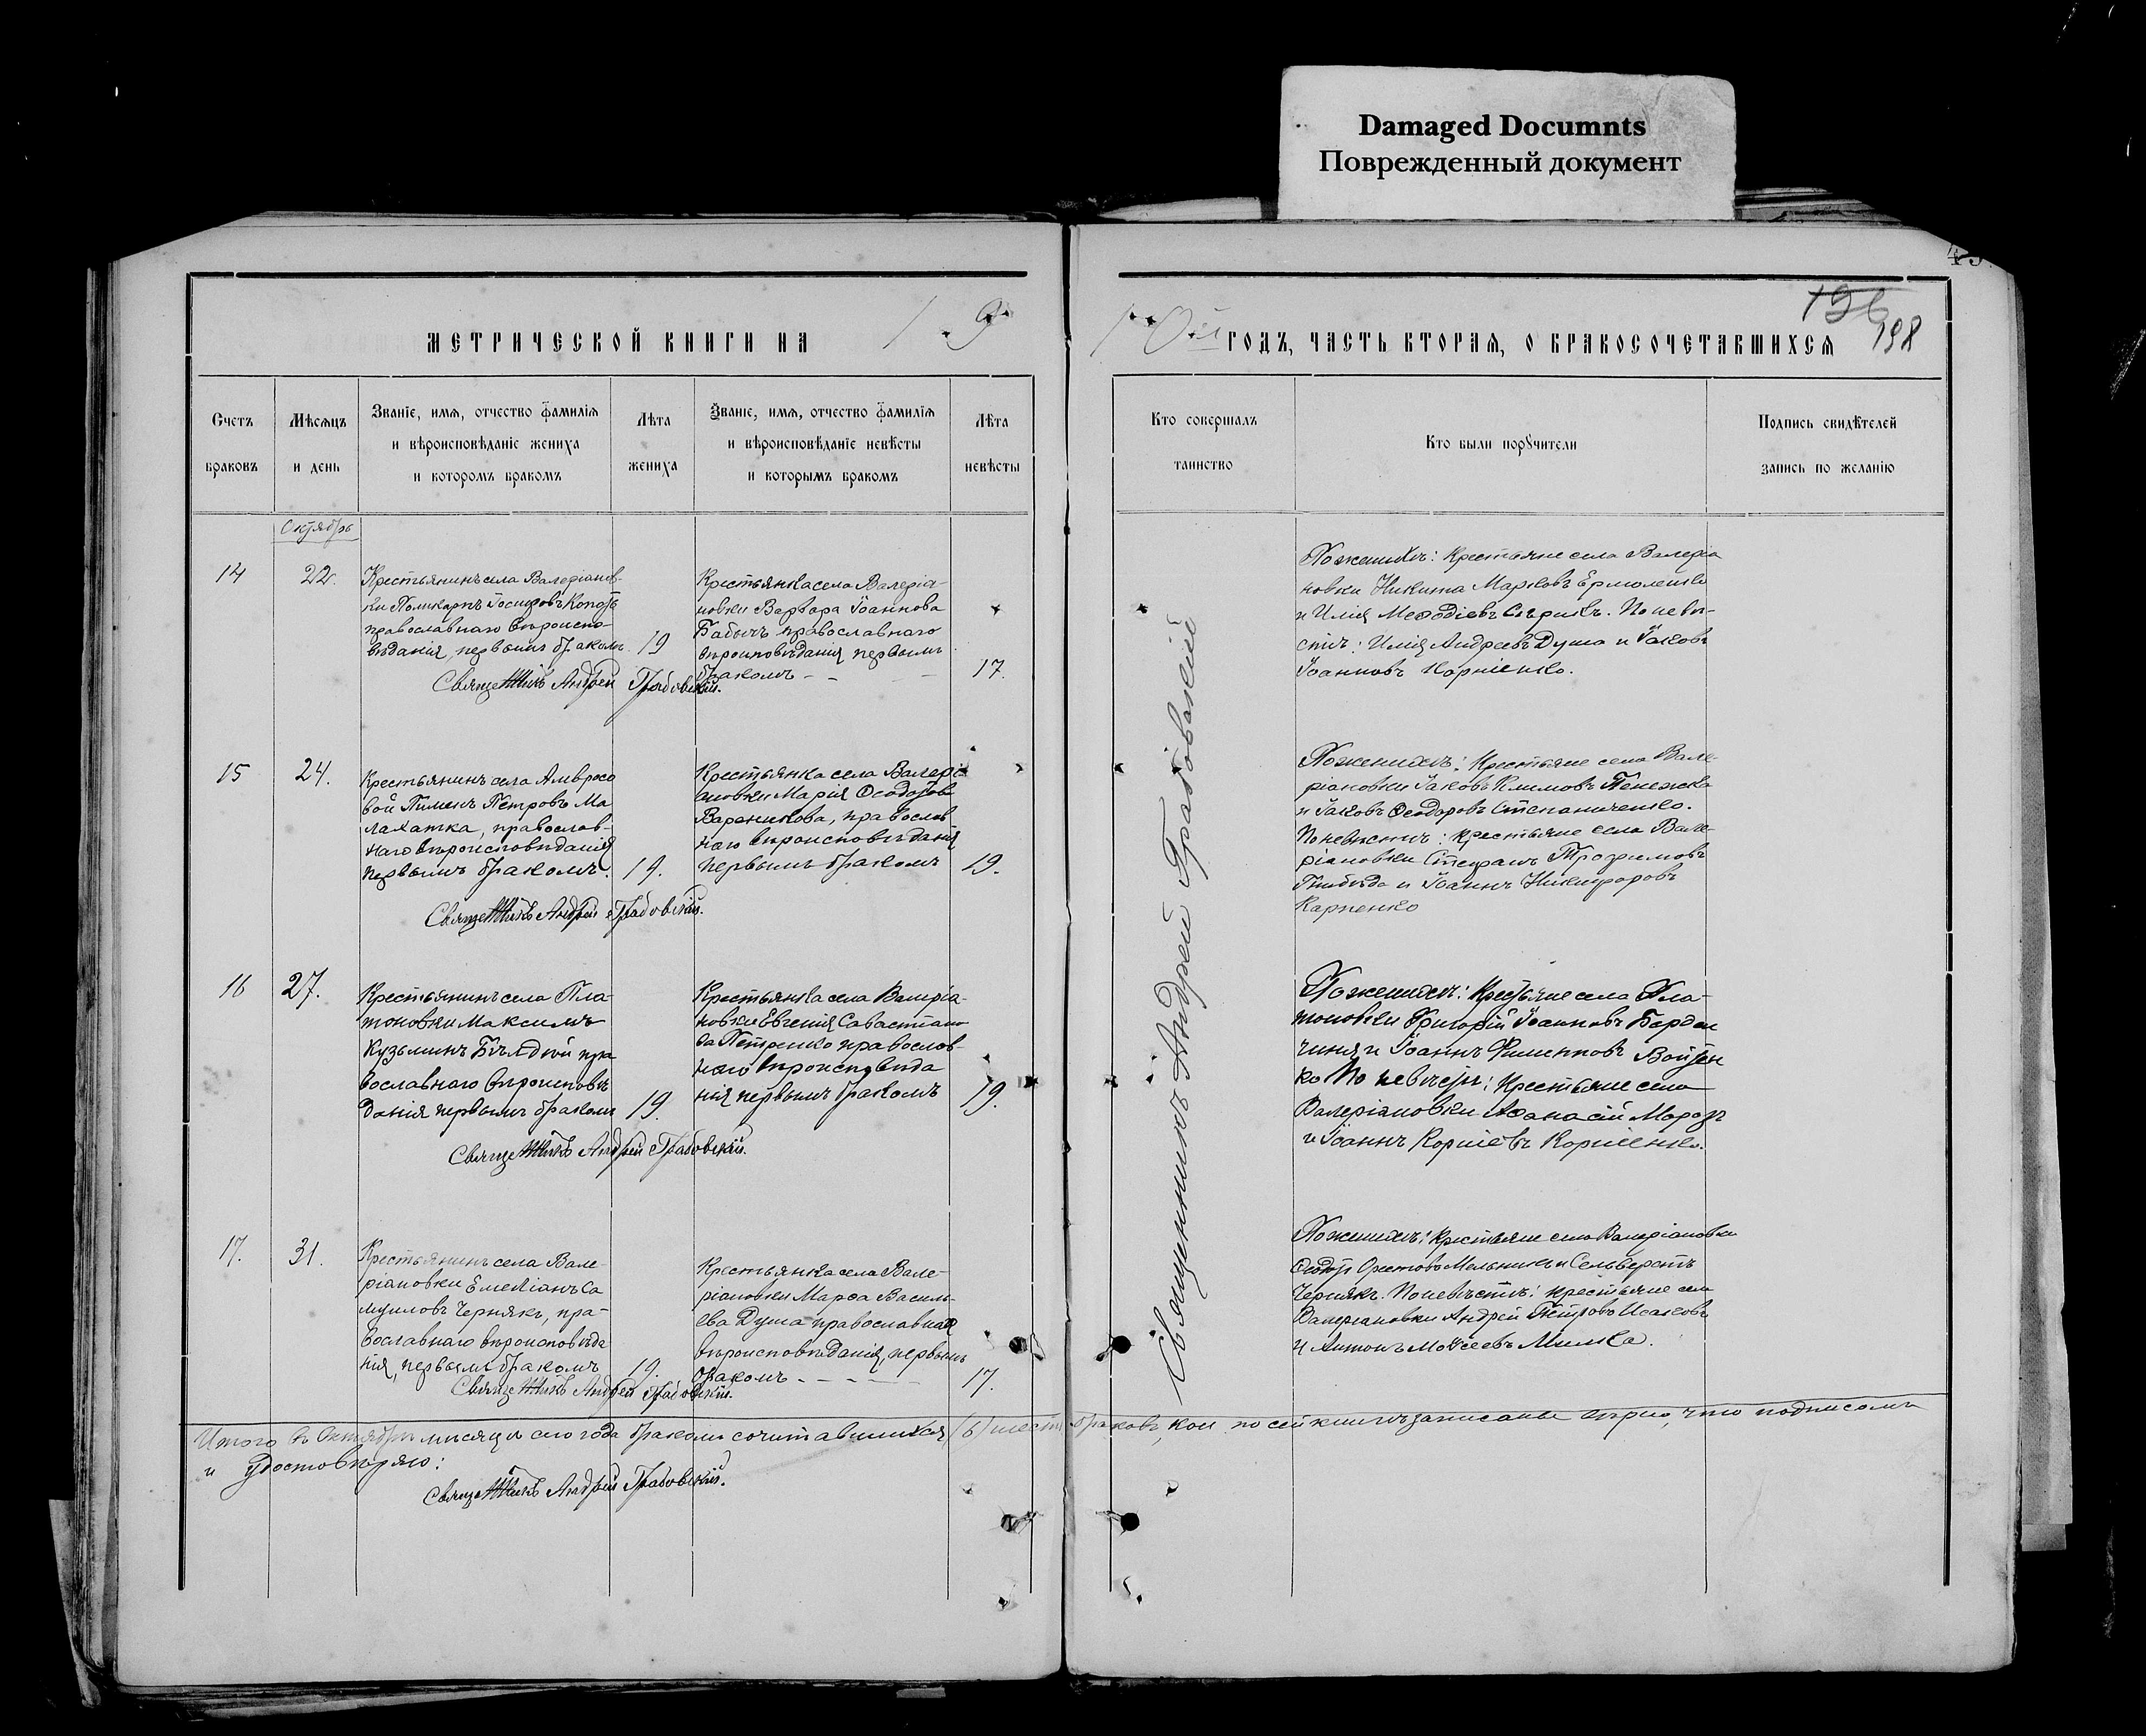 Damaged Documnts
Поврежденный документ
198
МЕТРИЧЕСКОЙ КНИГИ НА
ГОДЪ, ЧАСТЬ ВТОРАЯ, О БРАКОСОЧЕТАВШИХСЯ
Счетъ браковъ
Мѣсяцъ и день
Званіе, имя, отчество фамилія
и вѣроисповѣданіе жениха
и которомъ бракомъ
Лѣта жениха
Званіе, имя, отчество фамилія
и вѣроисповѣданіе невѣсты
и которымъ бракомъ
Лѣта невѣсты
Кто совершалъ таинство
Кто были поручители
Подпись свидѣтелей
запись по желанію
Октябрь
14
22.
Крестьянинъ села Валеріанов-
ки Поликарпъ Іосифовъ
православнаго вѣроиспо-
вѣданія, первымъ бракомъ.
19
Крестьянка села Валеріа-
новки Варвара Іоаннова
Бабычъ православнаго
вѣроисповѣданія первымъ
бракомъ
17.
Священникъ Андрей Грабовскій.
По женихѣ: Крестьяне села Валеріа
новки Никита Марковъ Ермоленко
и Илія Меѳодіевъ Сѣрикъ. По невѣ-
стѣ: Илія Андреевъ Дума и Іаковъ
Іоанновъ Корніенко.
15
24.
Крестьянинъ села Амвросо
вой Пименъ Петровъ Ма
лахатка, православ-
наго вѣроисповѣданія
первымъ бракомъ.
19.
Крестьянка села Валері
ановки Марія Ѳеодотова
Вареникова, православ
наго вѣроисповѣданія
первымъ бракомъ
19.
Священникъ Андрей Грабовскій.
По женихѣ: Крестьяне села Вале-
ріановки Іаковъ Климовъ
и Іаковъ Ѳеодоровъ Степаниченко.
По невѣстѣ: Крестьяне села Вале-
ріановки Стефанъ Трофимовъ
и Іоаннъ Никифоровъ
Карпенко
16
27.
Крестьянинъ села Пла-
тоновки Максимъ
Кузьминъ Бѣлдій пра
вославнаго вѣроисповѣ
данія первымъ бракомъ
19.
Крестьянка села Валеріа-
новки Евгенія Савастіано
ва Петренко православ-
наго вѣроисповѣда
нія первымъ бракомъ
19.
Священникъ Андрей Грабовскій.
По женихѣ: Крестьяне села Пла-
тоновки Григорій Іоанновъ
и Іоаннъ Филипповъ Войтен
ко По невѣстѣ: Крестьяне села
Валеріановки Аѳанасій Морозъ
и Іоаннъ Корніевъ Корніенко.
17.
31.
Крестьянинъ села Вале-
ріановки Емеліанъ Са
муиловъ Чернякъ, пра-
вославнаго вѣроисповѣда
нія, первымъ бракомъ
19.
Крестьянка села Вале-
ріановки Марѳа Василь-
ева Дума православнаго
вѣроисповѣданія, первымъ
бракомъ
17.
Священникъ Андрей Грабовскій.
По женихѣ: Крестьяне села Валеріановки
Ѳеодоръ Орестовъ Мельникъ и Сельверстъ
Чернякъ. По невѣстѣ: крестьяне села
Валеріановки Андрей Петровъ Исаковъ
и Антонъ Моѵсеевъ
Священникъ Андрей Грабовскій
Итого въ Октябрѣ мѣсяцѣ сего года бракомъ сочитавшихся (6) шесть браковъ, кои по сей книгѣ записаны вѣрно, что подписомъ
и удостовѣряю:
Священникъ Андрей Грабовскій.